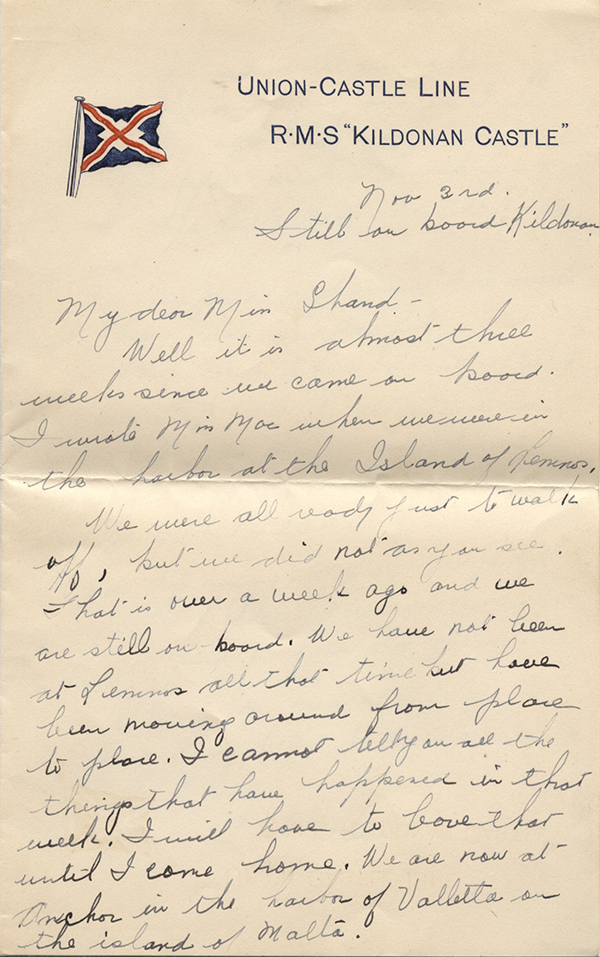 UNION-CASTLE LINE
R·M·S "KILDONAN CASTLE"
Nov 3rd.
Still on board Kildonan.
My dear Miss Shand -
Well it is almost three
weeks since we came on board.
I wrote Miss Mac when we were in
the harbor at the Island of Lemnos.
We were all ready just to walk
off, but we did not as you see.
That is over a week ago and we
are still on board. We have not been
at Lemnos all that time but have
been moving around from place
to place. I cannot tell you all the
things that have happened in that
week. I will have to leave that
until I come home. We are now at
Anchor in the harbor of Valletta on
the island of Malta.